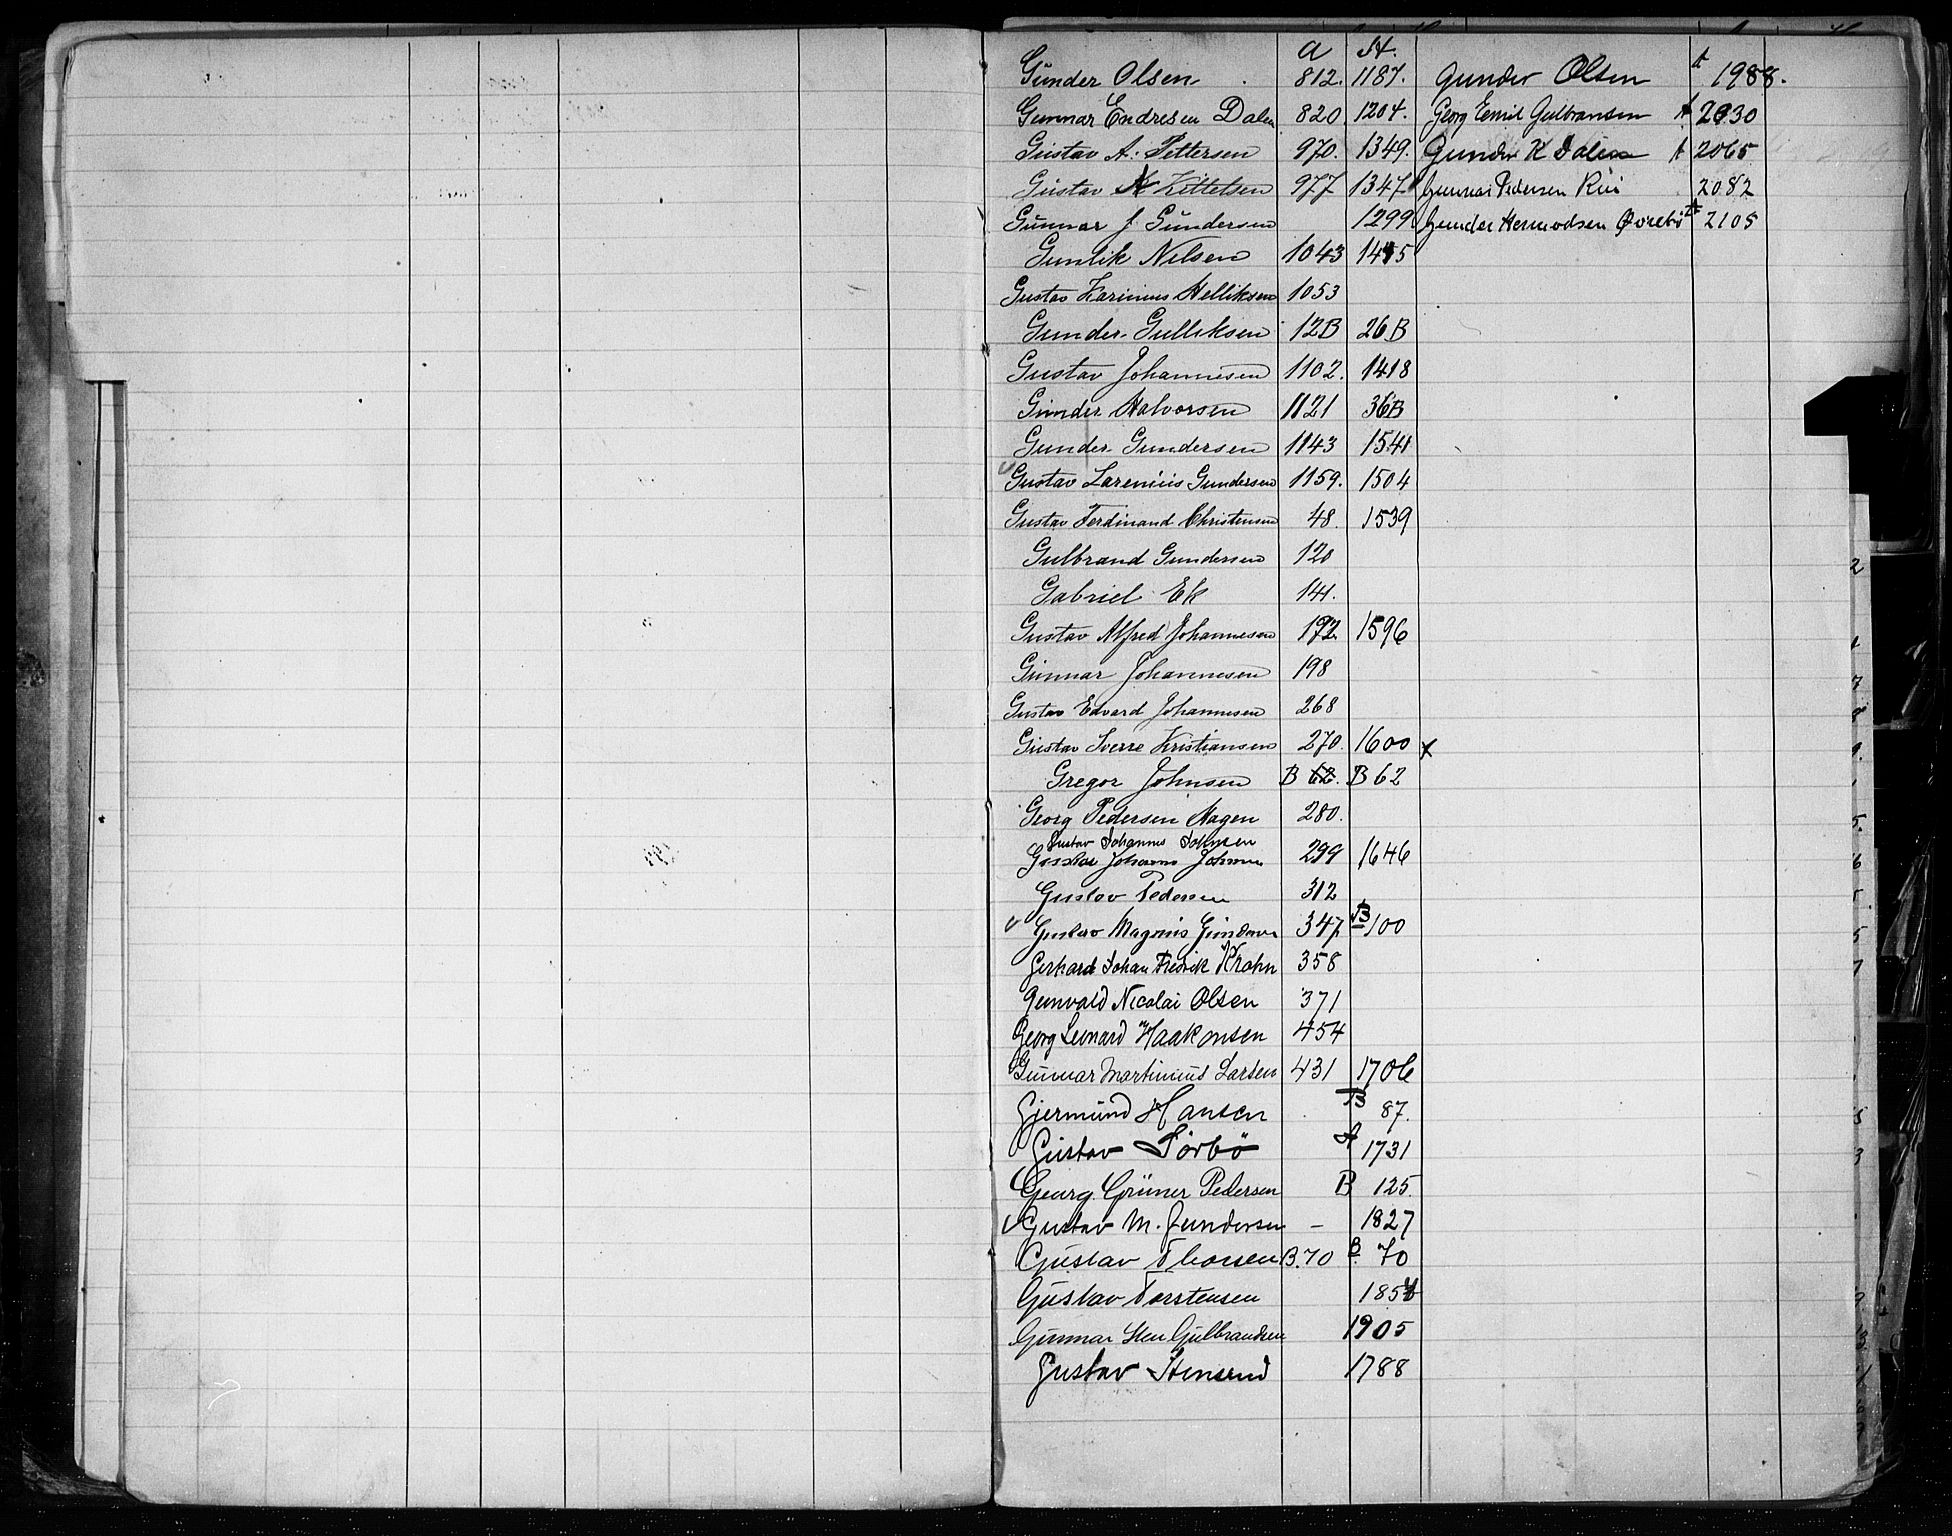 a St.
Gunder Olsen 812. 1187. Gunder Olsen A 1988.
Gunnar Endresen Dalen 820 1204. Georg Emil Gulbransen A 2030
Gustav A. Pettersen 970. 1349. Gunder K Dalen A 2065
Gustav A Kittelsen 977 1347 Gunnar Pedersen Rui 2082
Gunnar J. Gundersen 1299 Gunder Hermodsen Øvrebø A 2105
Gunlik Nilsen 1043 1415
Gustav Karinius Helliksen 1053
Gunder Gulliksen 12B 26B
Gustav Johannesen 1102. 1418
Gunder Halvorsen 1121 36B
Gunder Gundersen 1143 1541
Gustav Larenius Gundersen 1159. 1504
Gustav Ferdinand Christensen 48. 1539
Gulbrand Gundersen 120
Gabriel Ek 141.
Gustav Alfred Johannesen 192 1596
Gunnar Johannesen 198
Gustav Edvard Johannesen 268
Gustav Sverre Kristiansen 270. 1600 x
Gregor Johnsen B 62. B 62
Georg Pedersen Hagen 280.
Gustav Johannes Johnsen
Gustav Johanns Johnsen 299 1646
Gustav Pedersen 312
Gustav Magnus Gundersen 347 B 100
Gerhard Johan Fredrik Krohn 358
Gunvald Nicolai Olsen 371
Georg Leonard Haakonsen 454
Gunnar Martinius Larsen 431 1706
Gjermund Hansen B 87.
Gustav Sørbö A 1731
Georg Grüner Pedersen B 125.
Gustav M. Gundersen – 1827
Gustav Thorsen B.70 B. 70
Gustav Torstensen 1854
Gunnar Sten Gulbrandsen 1905
Gustav Stensrud 1788